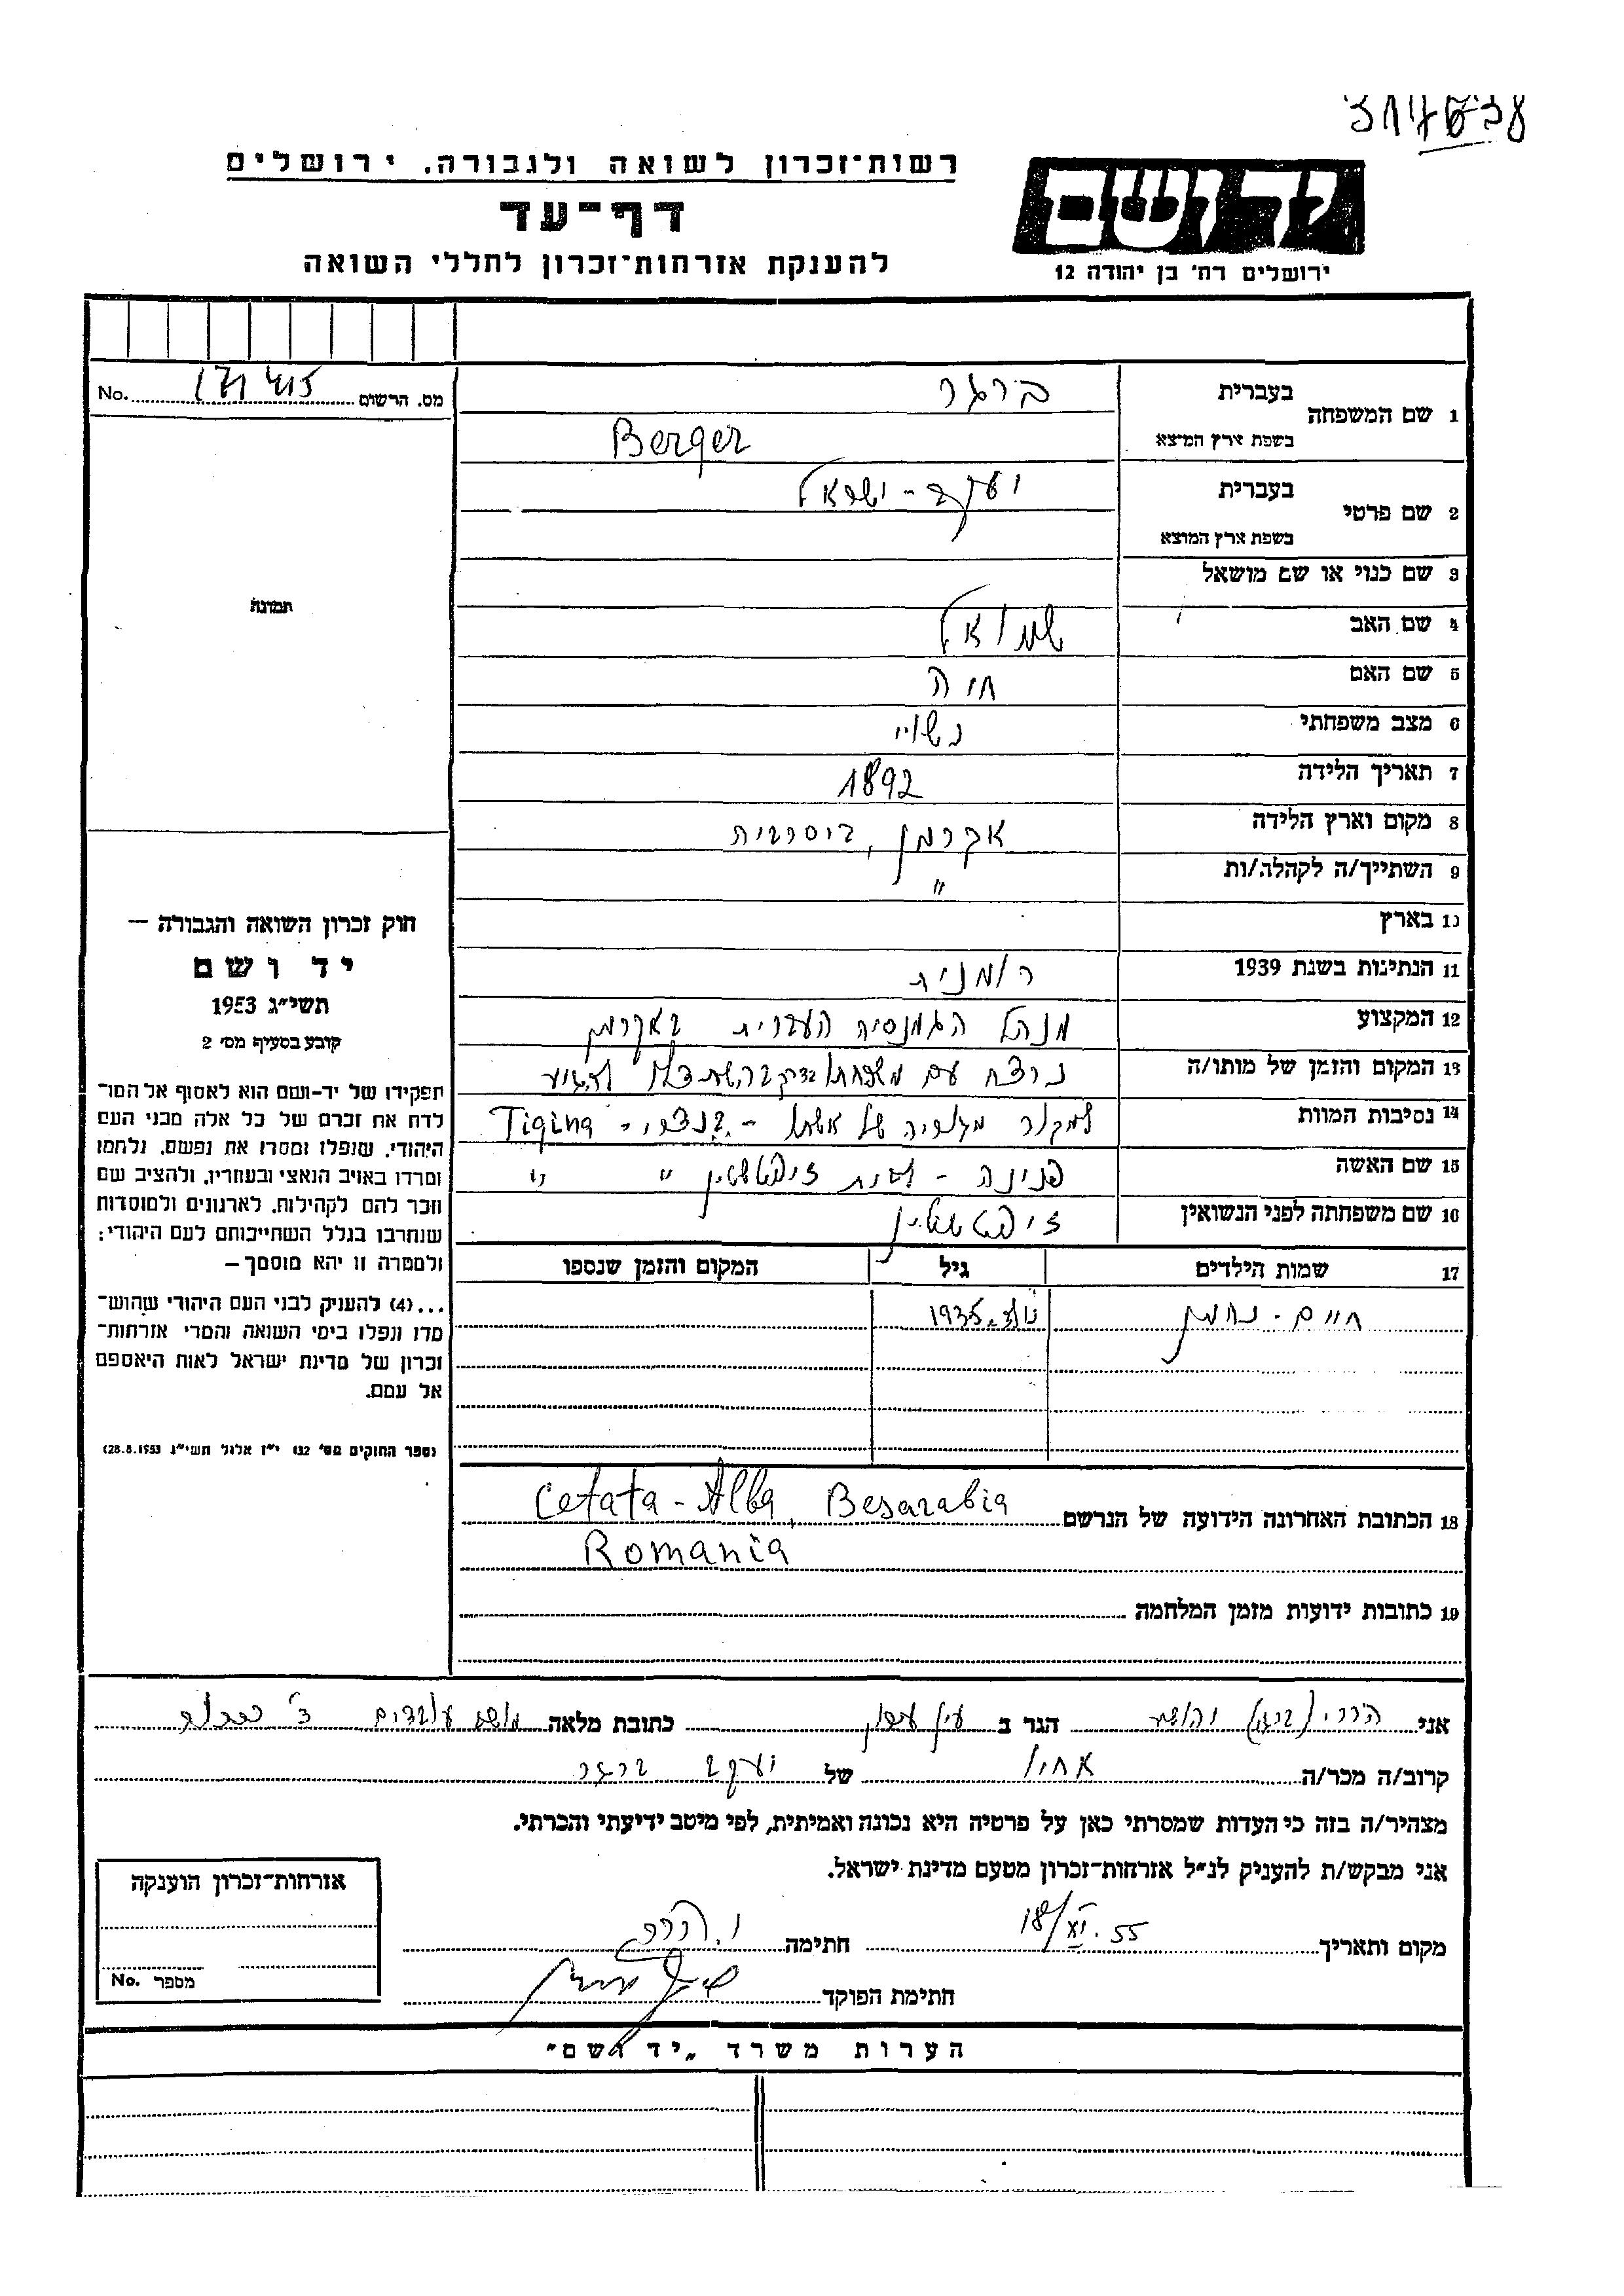 רשות־זכרון לשואה ולגבורה, ירושלים
דף־עד
להענקת אזרחות־זכרון לחללי השואה
יד ושם
ירושלים רח' בן יהודה 12
מס. הרשום No.
תמונה
1 שם המשפחה בעברית ברגר
בשפת ארץ המוצא Berger
2 שם פרטי בעברית יעקב - ישראל
בשפת ארץ המוצא
3 שם כנוי או שם מושאל
4 שם האב שמואל
5 שם האם חיה
6 מצב משפחתי נשוי
7 תאריך הלידה 1892
8 מקום וארץ הלידה אקרמן, ביסרביה
9 השתייך/ה לקהלה/ות "
10 בארץ
11 הנתינות בשנת 1939 רומנית
12 המקצוע מנהל הגמנסיה העברית באקרמן
13 המקום והזמן של מותו/ה נרצח עם משפחתו
14 נסיבות המוות של אשתו - Tigina
15 שם האשה פנינה - לבית
16 שם משפחתה לפני הנשואין
17 שמות הילדים גיל המקום והזמן שנספו
חיים - נחמן נולד 1935
18 הכתובת האחרונה הידועה של הנרשם Cetata - Alba, Besarabia
Romania
19 כתובות ידועות מזמן המלחמה
חוק זכרון השואה והגבורה —
יד ושם
תשי״ג 1953
קובע בסעיף מס׳ 2
תפקידו של יד-ושם הוא לאסוף אל המו־
לדת את זכרם של כל אלה מבני העם
היהודי, שנפלו ומסרו את נפשם, נלחמו
ומרדו באויב הנאצי ובעוזריו, ולהציב שם
וזכר להם לקהילות, לארגונים ולמוסדות
שנחרבו בגלל השתייכותם לעם היהודי;
ולמטרה זו יהא מוסמך —
...(4) להעניק לבני העם היהודי שהוש־
מדו ונפלו בימי השואה והמרי אזרחות־
זכרון של מדינת ישראל לאות היאספם
אל עמם.
(ספר החוקים מס׳ 132 י״ז אלול תשי״ג 28.8.1953)
אני הררי (ברגר) הגר ב עין כתובת מלאה מושב עובדים
קרוב/ה מכר/ה אחיו של יעקב ברגר
מצהיר/ה בזה כי העדות שמסרתי כאן על פרטיה היא נכונה ואמיתית, לפי מיטב ידיעתי והכרתי.
אני מבקש/ת להעניק לנ״ל אזרחות-זכרון מטעם מדינת ישראל.
מקום ותאריך חתימה
חתימת הפוקד
אזרחות-זכרון הוענקה
מספר No.
הערות משרד „יד ושם"